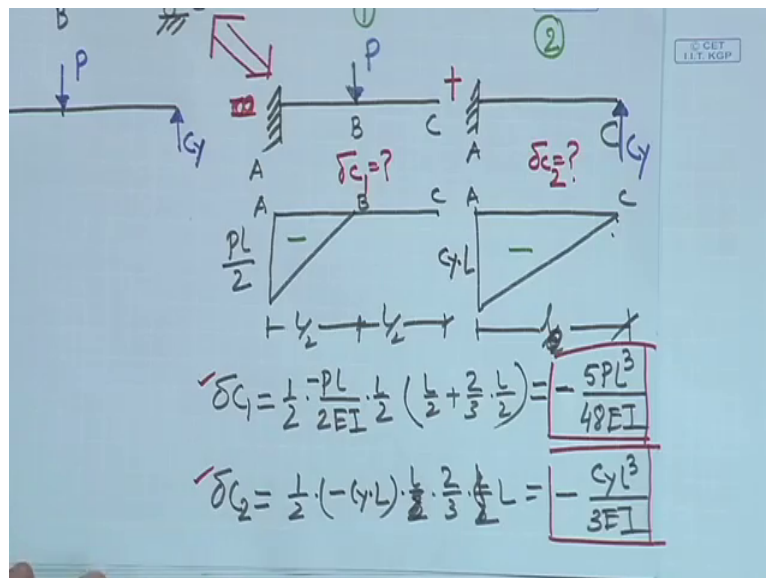 B
①
②
© CET
I.I.T. KGP
P
P
+
A
B
C
A
C
Cy
Cy
δC₁=?
δC₂=?
A
B
C
A
C
PL/2
−
Cy·L
−
L/2
L/2
δC₁ = 1/2 · -PL/2EI · L/2 (L/2 + 2/3 · L/2) = - 5PL³/48EI
δC₂ = 1/2 · (-Cy·L) · L · 2/3 · L = - CyL³/3EI